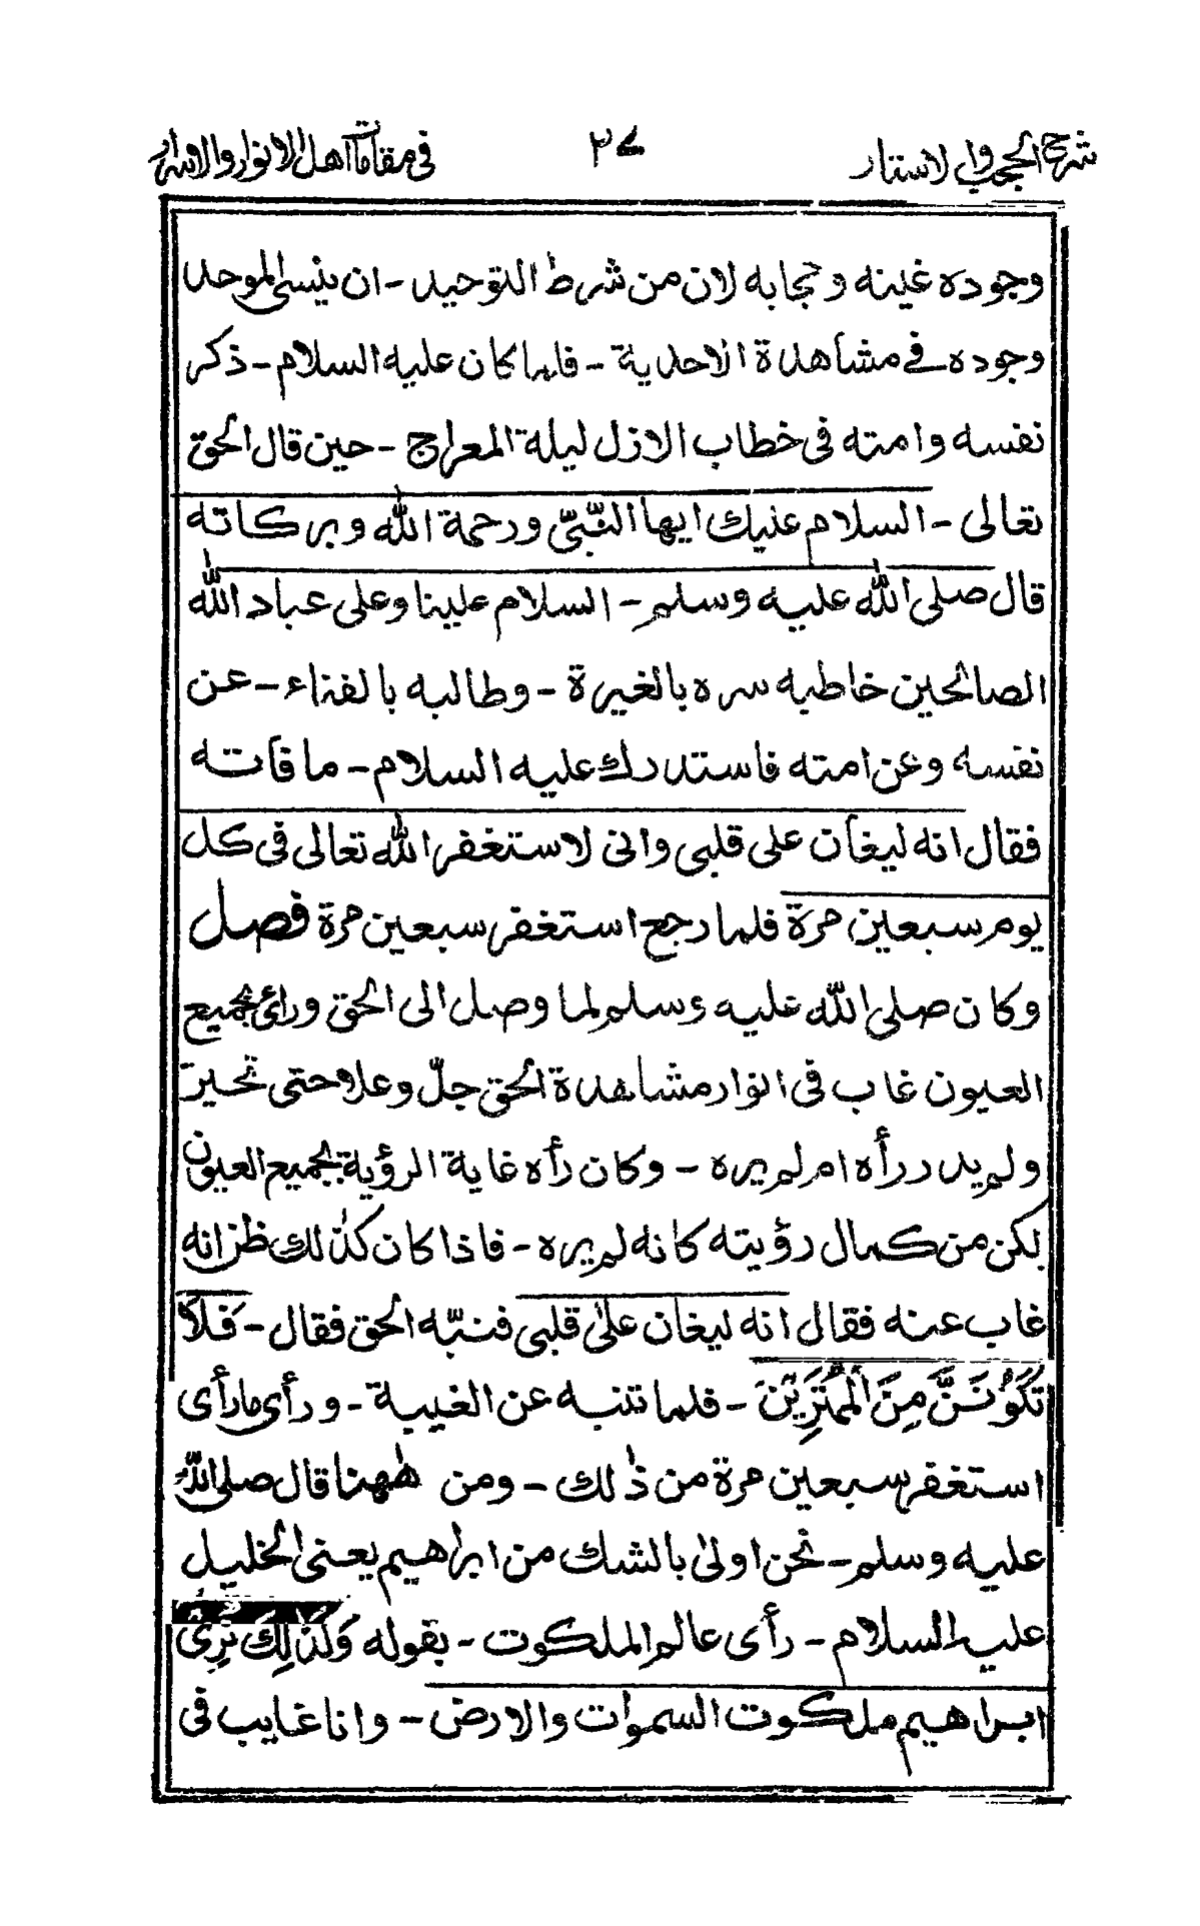 شرح الحجب والاستار ٢٧ في مقامات اهل الانوار والاسرار
وجوده غينه وحجابه لان من شرط التوحيد - ان ينسى الموحد
وجوده في مشاهدة الاحدية - فلما كان عليه السلام - ذكر
نفسه وامته في خطاب الازل ليلة المعراج - حين قال الحق
تعالى - السلام عليك ايها النّبيّ ورحمة الله وبركاته
قال صلى الله عليه وسلم - السلام علينا وعلى عباد الله
الصالحين خاطبه سره بالغيرة - وطالبه بالفناء - عن
نفسه وعن امته فاستدرك عليه السلام - ما فاته
فقال انه ليغان على قلبي واني لاستغفر الله تعالى في كل
يوم سبعين مرة فلما رجع استغفر سبعين مرة فصل
وكان صلى الله عليه وسلم لما وصل الى الحق ورائ بجميع
العيون غاب في انوار مشاهدة الحق جلّ وعلا حتى تحير
ولم يدر رأه ام لم يره - وكان رأه غاية الرؤية بجميع العيون
لكن من كمال رؤيته كانه لم يره - فاذا كان كذٰلك ظن انه
غاب عنه فقال انه ليغان علىٰ قلبي فنبّه الحق فقال - فَلَا
تَكُوْنَنَّ مِنَ الْمُمْتَرِيْنَ - فلما تنبه عن الغيبة - ورأى ما رأى
استغفر سبعين مرة من ذٰلك - ومن هٰهنا قال صلى الله
عليه وسلم - نحن اولىٰ بالشك من ابراهيم يعنى الخليل
عليه السلام - رأى عالم الملكوت - بقوله وَكَذٰلِكَ نُرِىْ
ابراهيم ملكوت السموات والارض - وانا غايب في